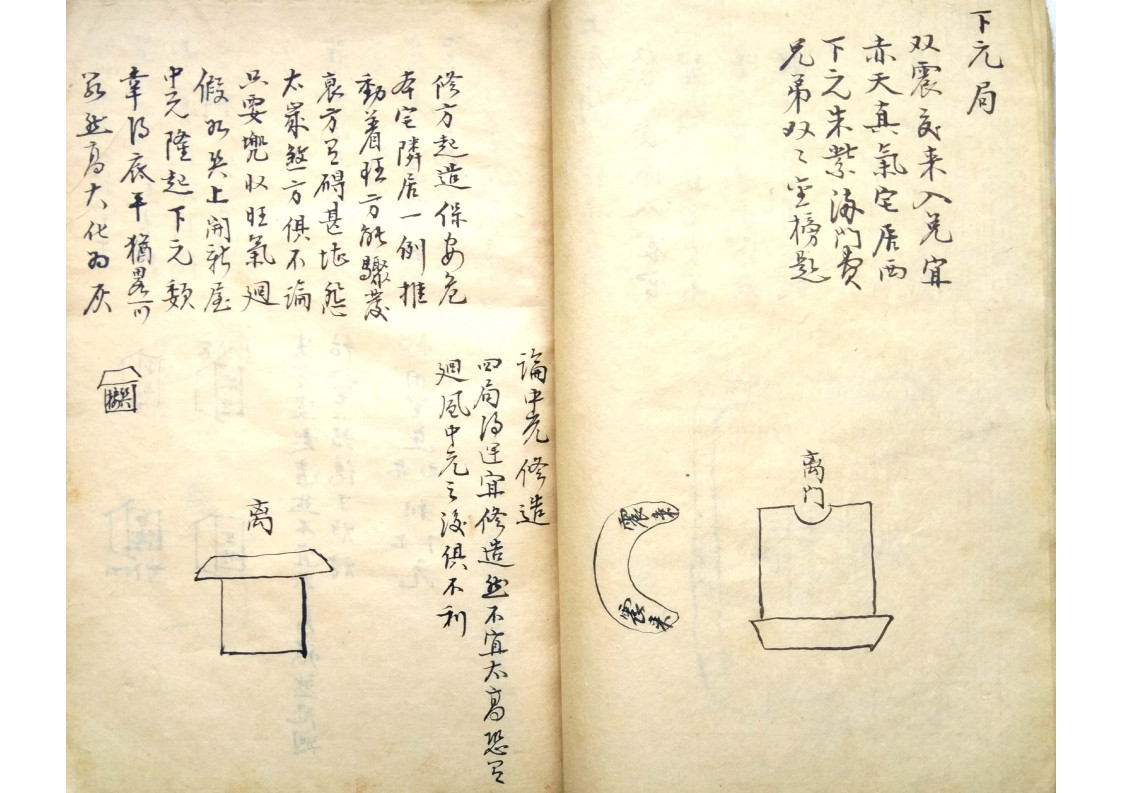 下元局
双震交来入兑宜
赤天真氣宅居西
下元朱紫满门贵
兄弟双〻金榜题
离门
震来
震来
論中元修造
四局得運宜修造然不宜太高恐又
廻風中元之後俱不利
修方起造保安危
本宅隣居一例推
動着旺方能驟發
衰方又碍甚堪
太歲煞方俱不論
只要兜収旺氣廻
假如巽上開新屋
中元隆起下元頹
幸得底平猶畧可
若然高大化為灰
离